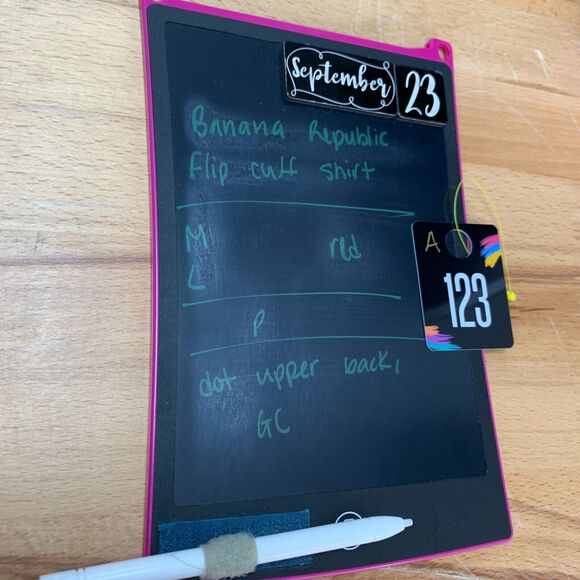 September 23
Banana Republic
flip cuff shirt
M red
L
P
dot upper back,
GC
A
123